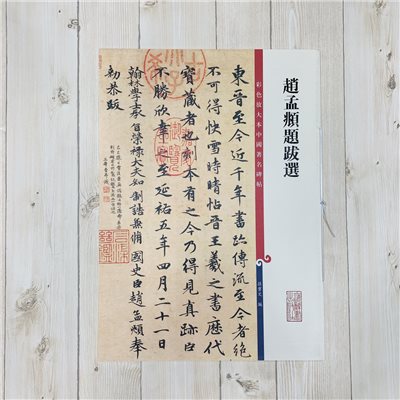 趙孟頫題跋選
彩色放大本中國著名碑帖
孫寶文 編
東晉至今近千年書跡傳流至今者絕
不可得快雪時晴帖晉王羲之書歷代
寶藏者也刻本有之今乃得見真跡臣
不勝欣幸之至延祐五年四月二十一日
翰林學士承旨榮祿大夫知制誥兼脩國史臣趙孟頫奉
勑恭跋